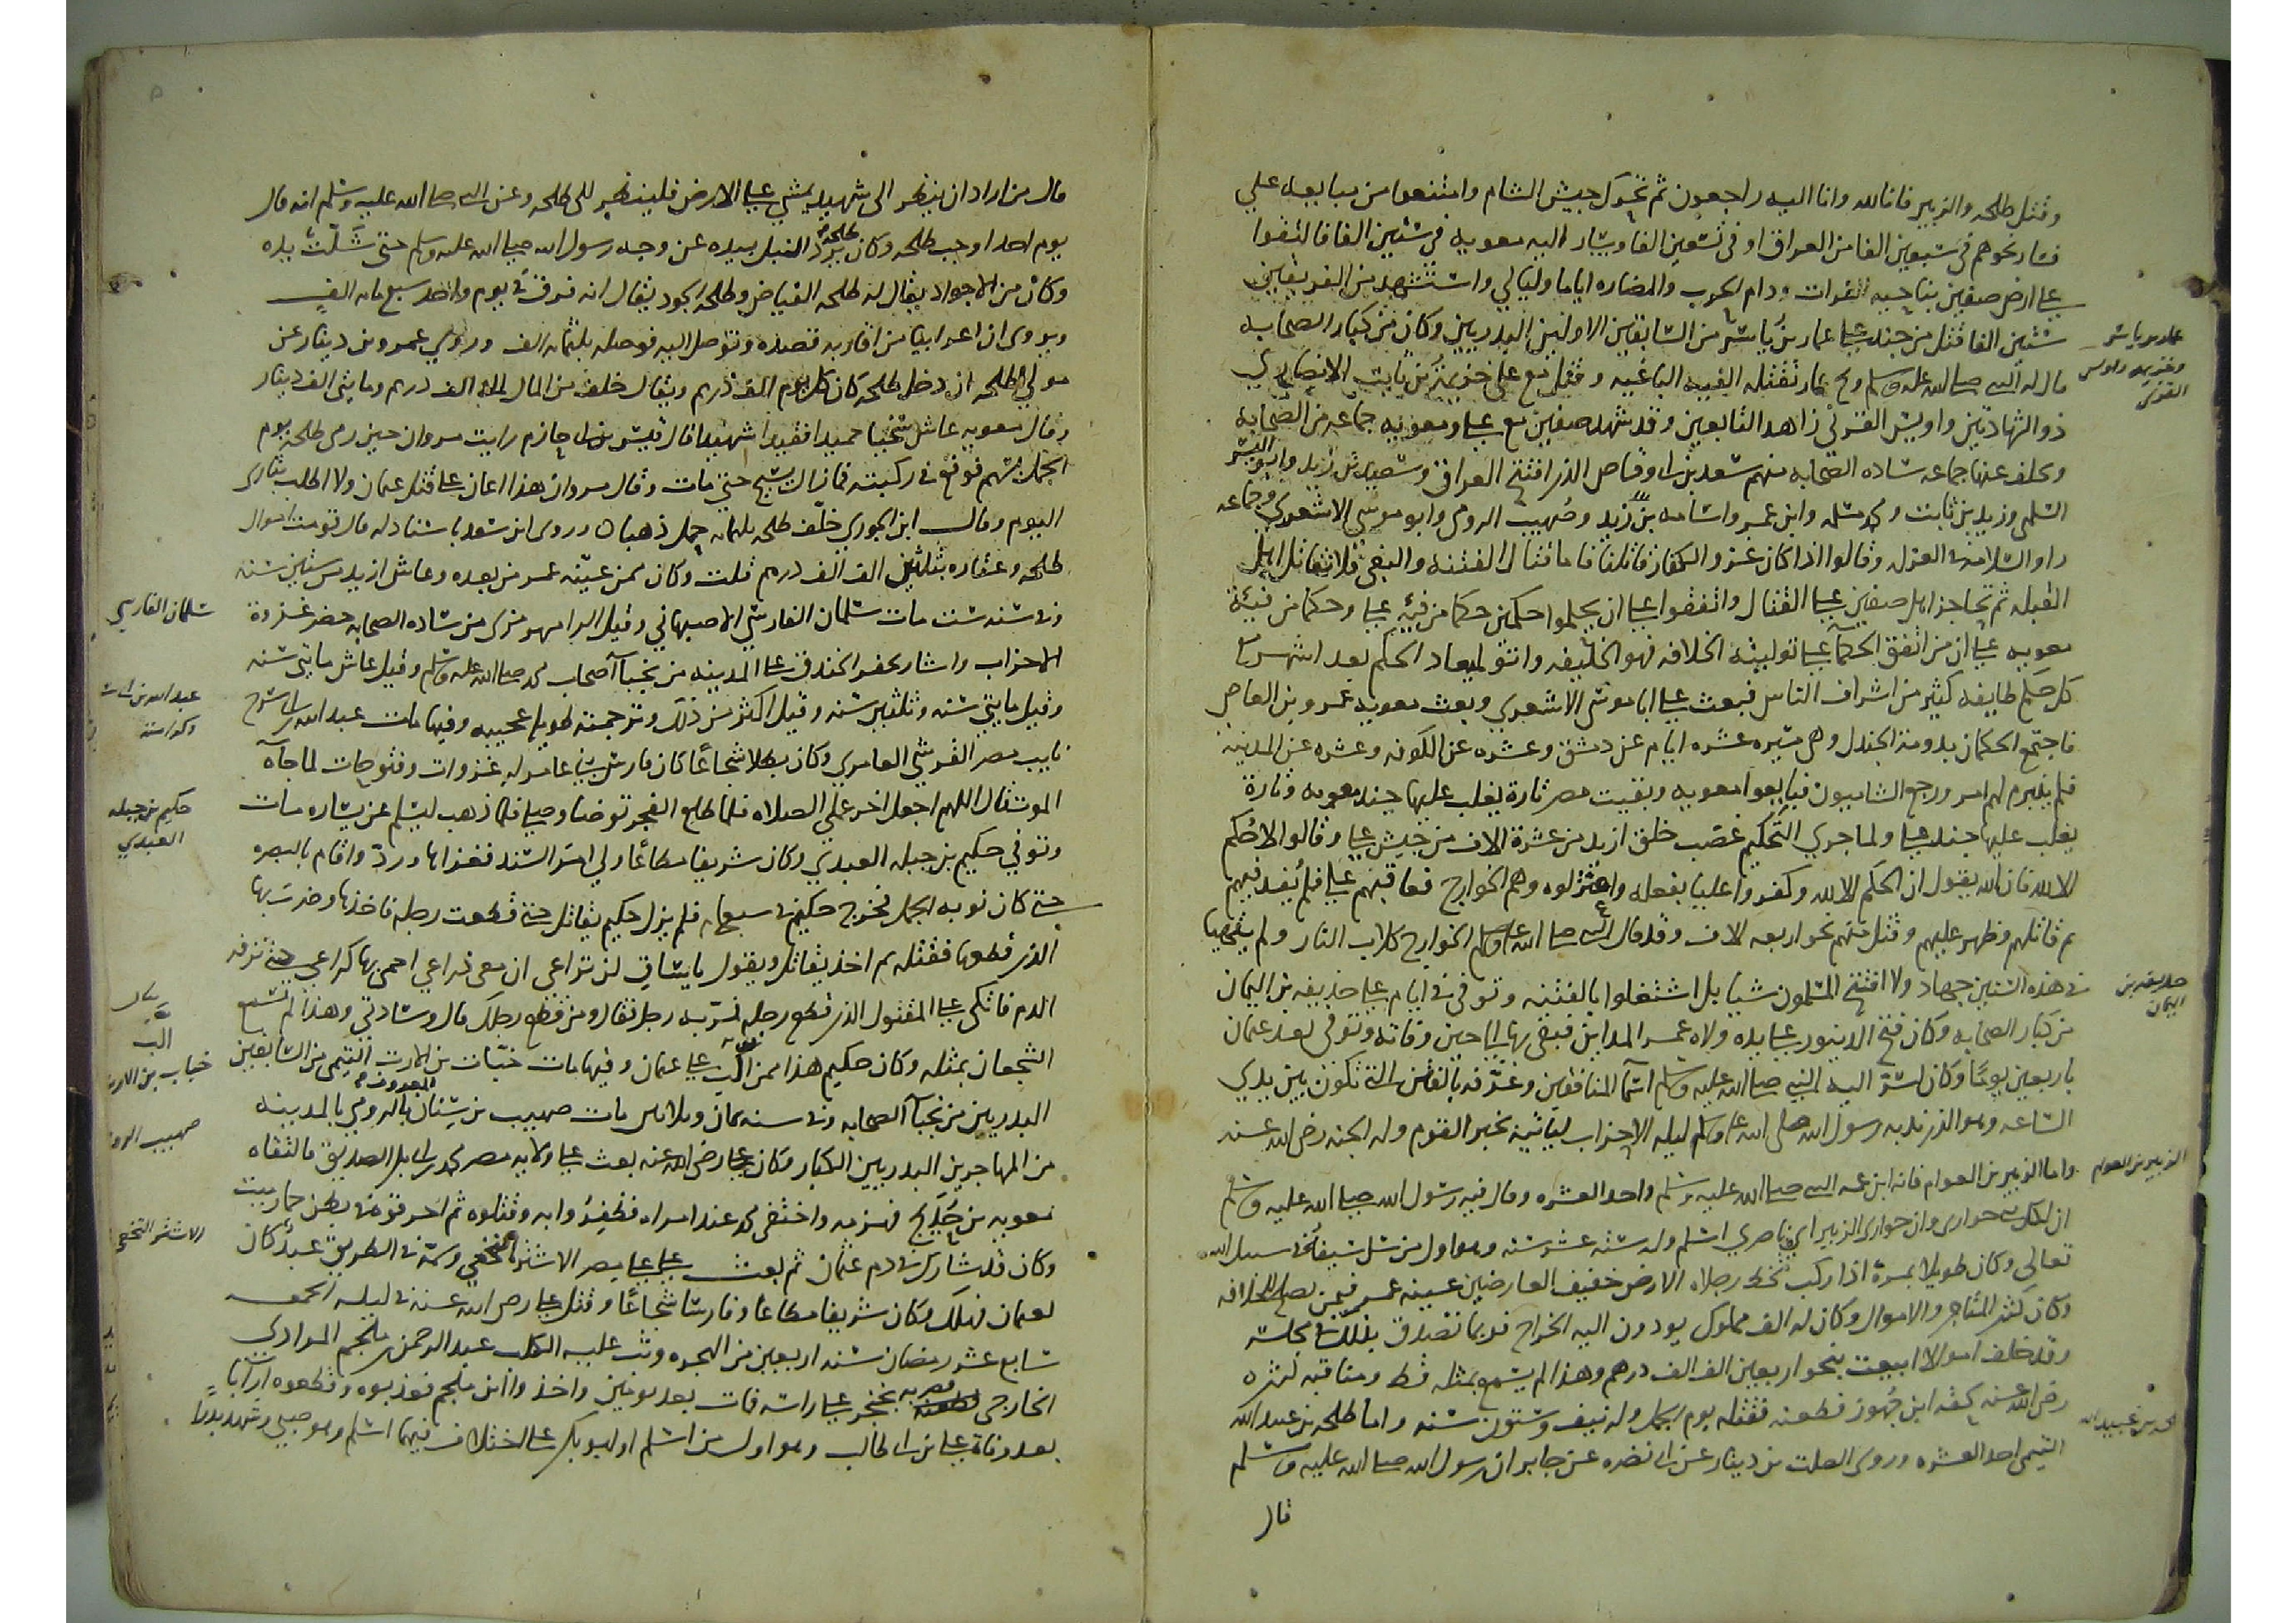 وقتل طلحه والزبير فانا لله وانا اليه راجعون ثم تحرك جيش الشام وامتنعوا من مبايعه علي
فسار نحوهم في سبعين الفا من العراق او في تسعين الفا وسار اليه معويه في ستين الفا فالتقوا
على ارض صفين بناحيه الفرات ودام الحرب والمصابره اياما وليالي واستشهد من الفريقين
ستين الفا فقتل من جند علي عمار بن ياسر من السابقين الاولين البدريين وكان من كبار الصحابه
قال له النبي صلى الله عليه وسلم ويح عمار تقتله الفيه الباغيه وقتل مع علي خزيمه بن ثابت الانصاري
ذو الشهادتين واويس القرني زاهد التابعين وقد شهد صفين مع علي ومعويه جماعه من الصحابه
وتخلف عنها جماعه ساده الصحابه منهم سعد بن ابي وقاص الذي افتتح العراق وسعيد بن زيد وابو اليسر
السلمي وزيد بن ثابت ومحمد بن مسلمه وابن عمر واسامه بن زيد وصهيب الرومي وابو موسى الاشعري وجماعه
راوا السلامه في العزله وقالوا اذا كان غزو الكفار قاتلنا فاما قتال الفتنه والبغي فلا نقاتل اهل
القبله ثم تحاجز اهل صفين على القتال واتفقوا على ان يحكموا حكمين حكما من فئة علي وحكما من فئة
معويه على ان من اتفق الحكمان على توليته الخلافه فهو الخليفه واتوا لميعاد الحكم بعد اشهر مع
كل حكم طايفه كثير من اشراف الناس فبعث علي ابا موسى الاشعري وبعث معويه عمرو بن العاص
فاجتمع الحكمان بدومة الجندل وهي مسيره عشره ايام عن دمشق وعشره عن الكوفه وعشره عن المدينه
فلم يبرم لهم امر ورجع الشاميون فبايعوا معويه وبقيت مصر تارة يغلب عليها جند معويه وتارة
يغلب عليها جند علي ولما جرى التحكيم غضب خلق ازيد من عشرة الاف من جيش علي وقالوا لا حكم
الا لله فان الله يقول ان الحكم الا لله وكفروا عليا بفعله واعتزلوه وهم الخوارج فعاتبهم علي فلم يُفد فيهم
ثم قاتلهم وظهر عليهم وقتل منهم نحو اربعه الاف وقد قال النبي صلى الله عليه وسلم الخوارج كلاب النار ولم يتهيا
في هذه السنين جهاد ولا افتتح المسلمون شيا بل اشتغلوا بالفتنه وتوفي في ايام علي حذيفه بن اليمان
من كبار الصحابه وكان فتح الدينور على يده ولاه عمر المداين فبقي بها الى حين وفاته وتوفي بعد عثمان
باربعين يوما وكان اسر اليه النبي صلى الله عليه وسلم اسما المنافقين وعرفه بالفتن التي تكون بين يدي
الساعه وهو الذي ندبه رسول الله صلى الله عليه وسلم ليله الاحزاب لياتيه بخبر القوم وله الجنه رضي الله عنه
واما الزبير بن العوام فانه ابن عمه النبي صلى الله عليه وسلم واحد العشره وقال فيه رسول الله صلى الله عليه وسلم
ان لكل نبي حواري وان حواري الزبير اي ناصري اسلم وله سته عشر سنه وهو اول من سل سيفا في سبيل الله
تعالى وكان طويلا بمرة اذا ركب تخط رجلاه الارض خفيف العارضين عينه عمر فيمن يصلح للخلافه
وكان كثير المتاجر والاموال وكان له الف مملوك يودون اليه الخراج فربما تصدق بذلك في مجلسه
وقد خلف اموالا ابيعت بنحو اربعين الف الف درهم وهذا لم يسمع بمثله قط ومناقبه كثيره
رضي الله عنه لحقه ابن جرموز فطعنه فقتله يوم الجمل وله نيف وستون سنه واما طلحه بن عبيد الله
التيمي احد العشره وروى الصلت بن دينار عن ابي نضره عن جابر ان رسول الله صلى الله عليه وسلم
قال
عمار بن ياسر
وخزيمه واويس
القرني
حذيفه بن
اليمان
الزبير بن العوام
طلحه بن عبيد الله
قال من اراد ان ينظر الى شهيد يمشي على الارض فلينظر الى طلحه وعن النبي صلى الله عليه وسلم انه قال
يوم احد اوجب طلحه وكان طلحة يرد النبل بيده عن وجه رسول الله صلى الله عليه وسلم حتى شلّت يده
وكان من الاجواد يقال له طلحه الفياض وطلحه الجود يقال انه فرق في يوم واحد سبع مايه الف
ويروى ان اعرابيا من اقاربه قصده وتوصل اليه فوصله بثلثمايه الف وروي عمرو بن دينار عن
مولى لطلحه ان دخل طلحه كان كل يوم الف درهم ويقال خلف من المال الف الف درهم ومايتي الف دينار
وقال معويه عاش سخيا حميدا فقيدا شهيدا قال قيس بن ابي حازم رايت مروان حين رمى طلحه يوم
الجمل بسهم فوقع في ركبته فما زال يسح حتى مات وقال مروان هذا اعان على قتل عثمان ولا اطلب بثاري
اليوم وقال ابن الجوزي خلّف طلحه ثلثمايه حمل ذهبا وروى ابن سعد باسناد له قال قومت اموال
طلحه وعقاره بثلثين الف الف درهم قلت وكان ممن عيّنه عمر من بعده وعاش ازيد من ستين سنه
وفي سنه ست مات سلمان الفارسي الاصبهاني وقيل الرامهرمزي من ساده الصحابه حضر غزوة
الاحزاب واشار بحفر الخندق على المدينه من نجبا اصحاب محمد صلى الله عليه وسلم وقيل عاش مايتي سنه
وقيل مايتي سنه وثلثين سنه وقيل اكثر من ذلك وترجمته طويله عجيبه وفيها مات عبد الله بن ابي سرح
نايب مصر القرشي العامري وكان بطلا شجاعا كان فارس بني عامر له غزوات وفتوحات لما جاه
الموت قال اللهم اجعل اخر عملي الصلاه فلما طلع الفجر توضا وصلى فلما ذهب ليسلم عن يساره مات
وتوفي حكيم بن جبله العبدي وكان شريفا مطاعا ولي امر السند فغزاها وردّ واقام بالبصره
حتى كان نوبه الجمل فخرج حكيم في سبعمايه فلم يزل حكيم يقاتل حتى قطعت رجله فاخذها وضرب بها
الذي قطعها فقتله ثم اخذ يقاتل ويقول يا ساقي لن تراعي ان معي ذراعي احمي بها كراعي حتى نزفه
الدم فاتكى على المقتول الذي قطع رجله فمرّ به رجل فقال ومن قطع رجلك قال وسادتي وهذا لم نسمع
الشجعان بمثله وكان حكيم هذا ممن الّب على عثمان وفيها مات خبّاب بن الارت التيمي من السابقين
البدريين من نجبا الصحابه وفي سنه ثمان وثلاثين مات صهيب بن سنان المعروف بالرومي بالمدينه
من المهاجرين البدريين الكبار وكان علي رضي الله عنه بعث على ولايه مصر محمد بن ابي بكر الصديق فالتقاه
معويه بن حُدَيج فهزمه واختفى محمد عند امراه فظفروا به وقتلوه ثم احرقوه في بطن حمار ميت
وكان قد شارك في دم عثمان ثم بعث علي على مصر الاشتر النخعي وسمّه في الطريق عبد كان
لعثمان فهلك وكان شريفا مطاعا وفارسا شجاعا وقتل علي رضي الله عنه في ليله الجمعه
سابع عشر رمضان سنه اربعين من الهجره وثب عليه الكلب عبد الرحمن بن ملجم المرادي
الخارجي فضربه بخنجر على راسه فمات بعد يومين واخذوا ابن ملجم فعذبوه وقطعوه ارابا
بعد وفاة علي بن ابي طالب وهو اول من اسلم او ابو بكر على اختلاف فيهما اسلم وهو صبي وشهد بدرا
سلمان الفارسي
عبد الله بن ابي
حكيم بن جبله
العبدي
خباب بن الارت
صهيب الرومي
الاشتر النخعي